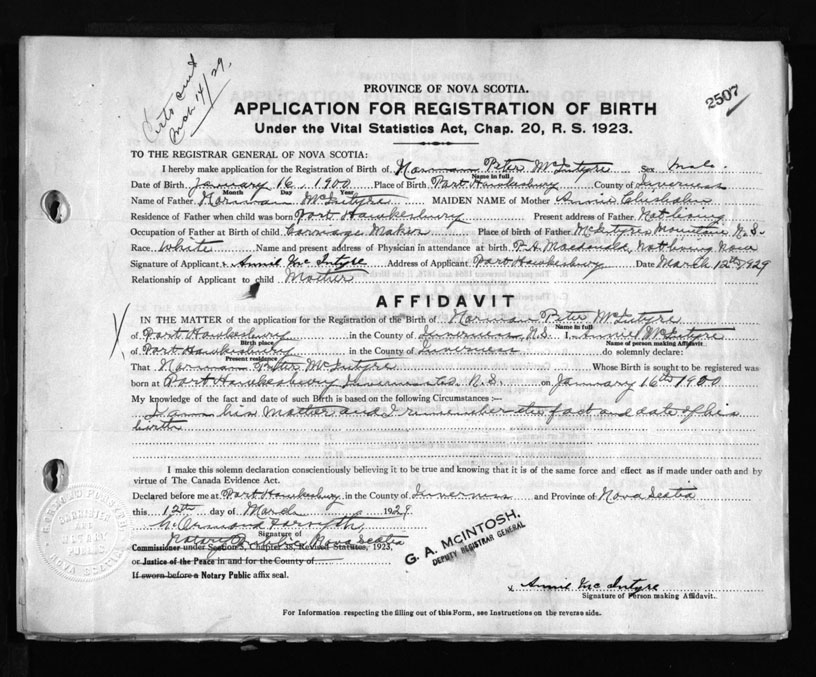 Certs out
Mar 14/29.
2507
PROVINCE OF NOVA SCOTIA.
APPLICATION FOR REGISTRATION OF BIRTH
Under the Vital Statistics Act, Chap. 20, R. S. 1923.
TO THE REGISTRAR GENERAL OF NOVA SCOTIA:
I hereby make application for the Registration of Birth of Norman Peter McIntyre Sex male
Name in full
Date of Birth January 16 1900 Place of Birth Port Hawkesbury County of Inverness
Month Day Year
Name of Father Norman McIntyre MAIDEN NAME of Mother Annie Chisholm
Residence of Father when child was born Port Hawkesbury Present address of Father Not living
Occupation of Father at Birth of child Carriage Maker Place of birth of Father McIntyres Mountain N.S.
Race White Name and present address of Physician in attendance at birth P.A. Macdonald Not living now
Signature of Applicant Annie Mc Intyre Address of Applicant Port Hawkesbury Date March 12th 1929
Relationship of Applicant to child Mother
AFFIDAVIT
IN THE MATTER of the application for the Registration of the Birth of Norman Peter McIntyre
Name in full
of Port Hawkesbury in the County of Inverness, N.S. I, Annie McIntyre
Birth place Name of person making Affidavit
of Port Hawkesbury in the County of Inverness do solemnly declare:
Present residence
That Norman Peter McIntyre Whose Birth is sought to be registered was
born at Port Hawkesbury Inverness Co. N.S. on January 16th 1900
My knowledge of the fact and date of such Birth is based on the following Circumstances :—
I am his Mother and I remember the fact and date of his
birth
I make this solemn declaration conscientiously believing it to be true and knowing that it is of the same force and effect as if made under oath and by
virtue of The Canada Evidence Act.
Declared before me at Port Hawkesbury in the County of Inverness and Province of Nova Scotia
this 12th day of March 1929
Ormond Forsyth
Signature of
Notary Public Nova Scotia
Commissioner under Section 3, Chapter 38, Revised Statutes, 1923,
or Justice of the Peace in and for the County of
If sworn before a Notary Public affix seal.
G. A. McINTOSH,
DEPUTY REGISTRAR GENERAL
x Annie Mc Intyre
Signature of Person making Affidavit.
For Information respecting the filling out of this Form, see Instructions on the reverse side.
BARRISTER
AND
NOTARY
PUBLIC
NOVA SCOTIA